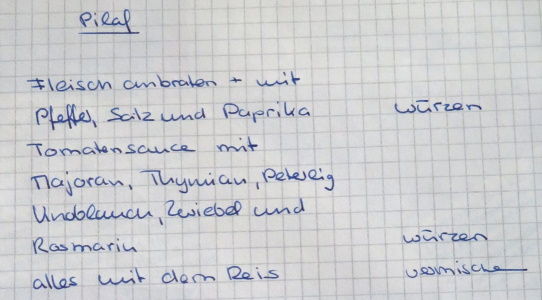 Pilaf
Fleisch anbraten + mit
Pfeffer, Salz und Paprika würzen
Tomatensauce mit
Majoran, Thymian, Petersilg
Knoblauch, Zwiebel und
Rosmarin würzen
alles mit dem Reis vermischen